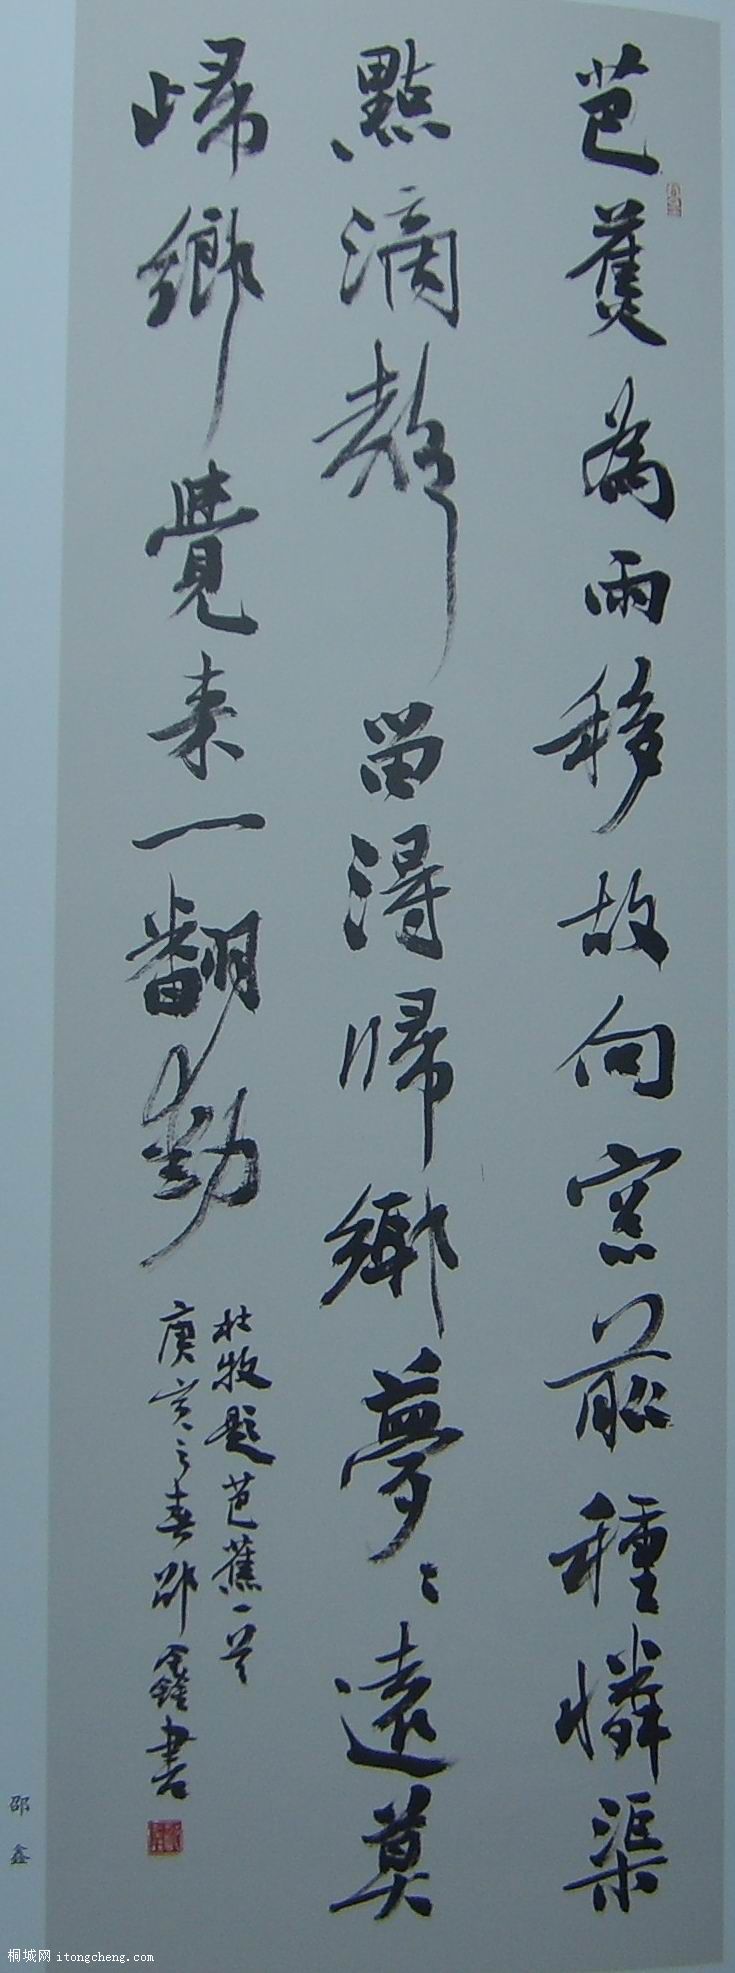 芭蕉為雨移故向窓前種憐渠
點滴聲留得歸鄉夢〻遠莫
歸鄉覺来一翻動
杜牧題芭蕉一首
庚寅之春邵鑫書
邵鑫
桐城网 itongcheng.com